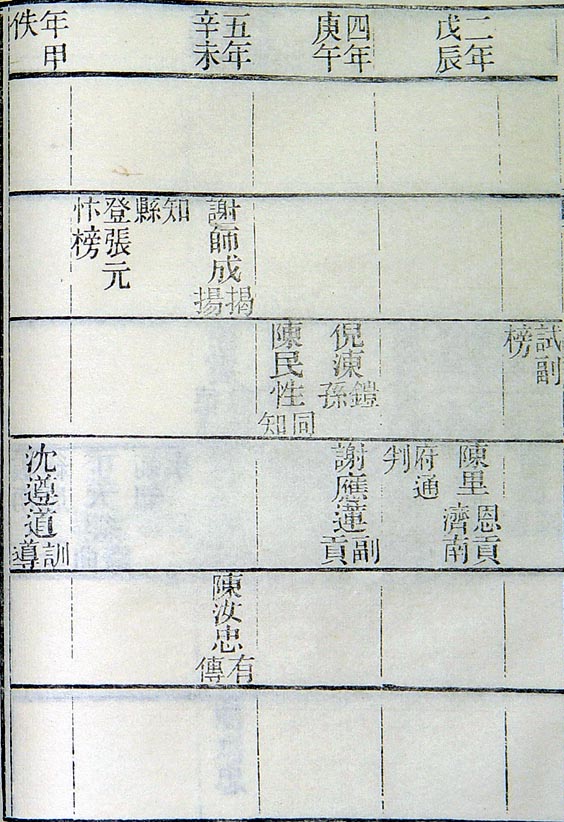 二年
戊辰
四年
庚午
五年
辛未
年甲
佚
謝師成
揭
揚
知
縣
登張元
忭榜
試副
榜
倪涷
鎧
孫
陳民性
同
知
陳里
恩貢
濟南
府通
判
謝應蓮
副
貢
沈遵道
訓
導
陳汝忠
有
傳